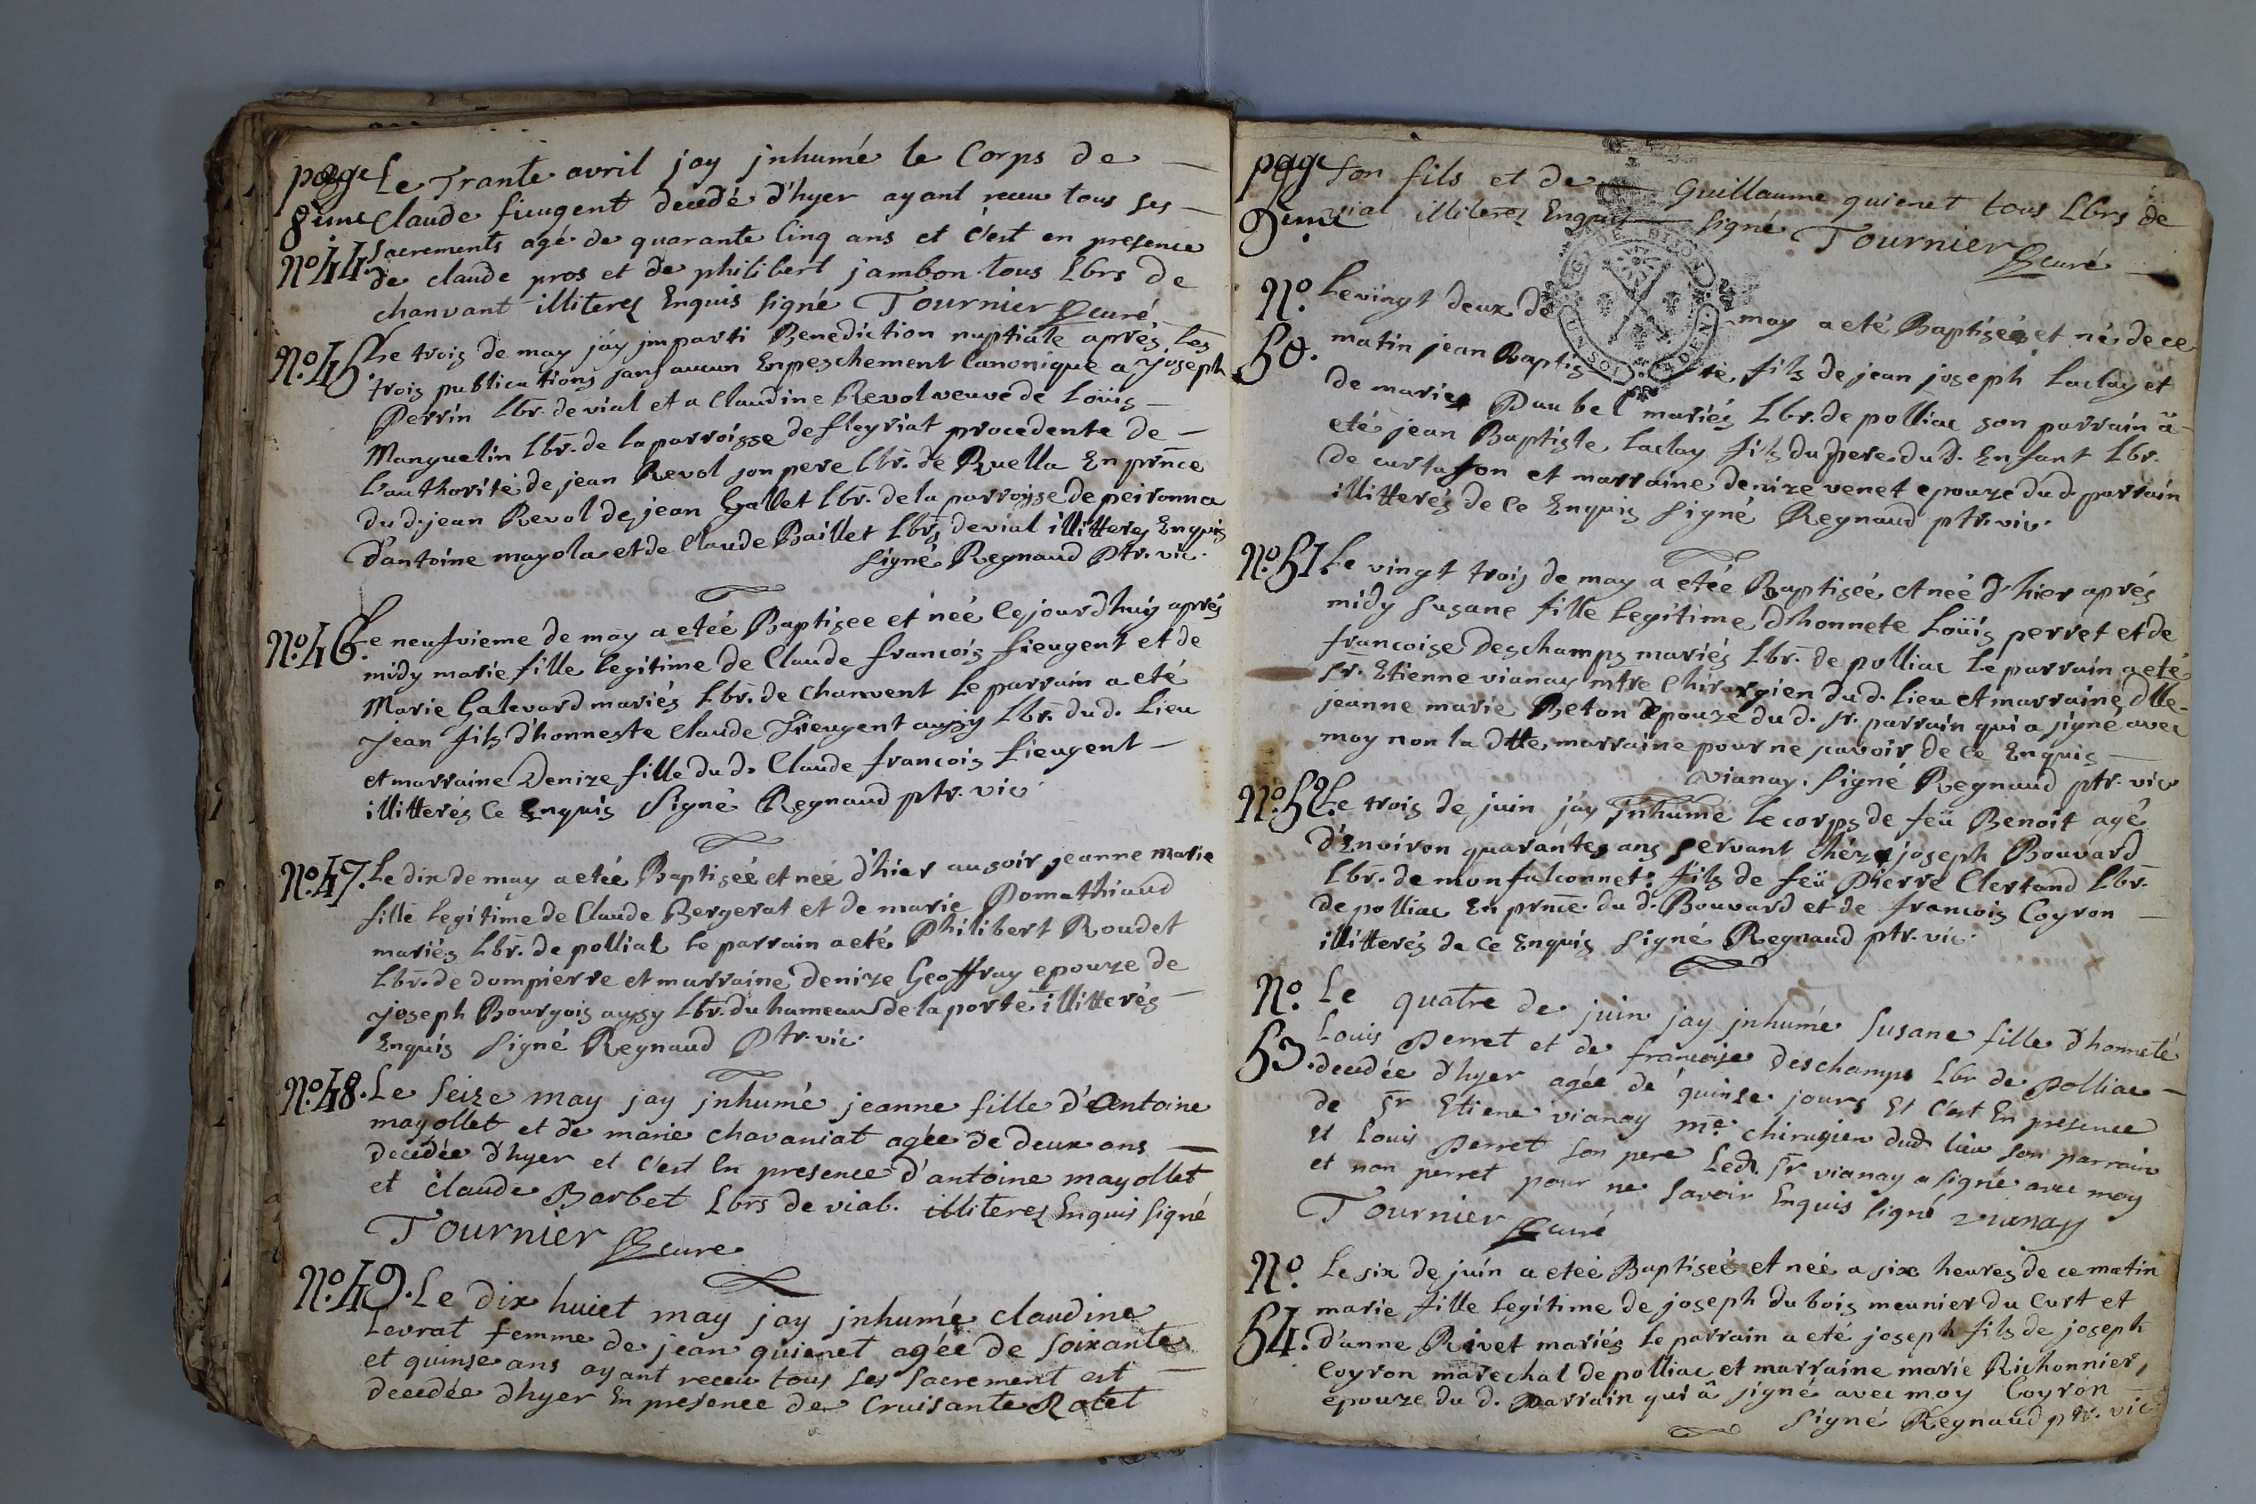 page Le Trante avril jay jnhumé le Corps de
8eme claude fieugent decedé d'hyer ayant receu tous ses
No 44. sacrements agé de quarante Cinq ans et c'est en presence
de claude pros et de philibert jambon tous Lbrs de
chanvant illiterez Enquis signé Tournier curé
No. 45. Le trois de may jáy jmparti Benediction nuptiale aprés les
trois publications sans aucun Enpeschement Canonique a joseph
Perrin Lbr. de vial et a Claudine Revol veuve de Loüis
Manguelin Lbr. de la parroisse de fleyriat procedente de
L'authorité de jean Revol son pere Lbr. de Ruella En prnce
du d. jean Revol de jean Gallet Lbr. de la parroisse de peironna
d'antoine mayola et de Claude Baillet Lbrs de vial illitteres Enquis
signé Regnaud Ptr. vic.
No. 46. Le neufvieme de may a etéé Baptisee et neé Cejourdhuy aprés
midy marie fille legitime de Claude francois fieugent et de
Marie Galevard mariés Lbr. de Chanvent Le parrain a eté
Jean fils d'honneste Claude fieugent aussy Lbr. du d. Lieu
et marraine Denize fille du d. Claude francois fieugent
illitterés Ce Enquis Signé Regnaud ptr. vic.
No. 47. Le dix de may a etéé Baptiséé et néé d'hier au soir jeanne marie
fille legitime de Claude Bergerat et de marie Pomathiaud
mariés Lbr. de polliat Le parrain a eté Philibert Roudet
Lbr. de dompierre et marraine denize Geoffray epouze de
Joseph Bourgois aussy Lbr. du hameau de la porte illitterés
Enquis Signé Regnaud Ptr. vic.
No. 48. Le Seize may jay jnhumé jeanne fille d'antoine
mayollet et de marie chavaniat agée de deux ans
decedée d'hyer et C'est En presence d'antoine mayollet
et claude Barbet Lbrs de vial. illiterez Enquis Signé
Tournier cure
No. 49. Le dix huict may jay jnhumé claudine
Levrat femme de jean quienet agée de soixante
et quinse ans ayant receu tous ses sacrement est
decedée dhyer En presence de Cruisante Rotet
page son fils et de Guillaume quienet tous Lbrs de
9eme vial illiterez Enquis signé Tournier
curé
No. Le vingt deux de may a eté Baptisé et né de ce
50. matin jean Baptiste, fils de jean joseph Laclay et
de marie Daubel mariés Lbr. de polliac son parrain â
eté jean Baptiste Laclay fils du pere du d. Enfant Lbr.
de curtafon et marraine denize venet epouze du d. parrain
illitterés de Ce Enquis Signé Regnaud ptr. vic.
No. 51 Le vingt trois de may a etéé Baptiséé et néé d'hier aprés
midy Susane fille Legitime d'honnete Loüis perret et de
francoise Deschamps mariés Lbr. de polliac Le parrain a eté
sr. Etienne vianay mtre Chirurgien du d. Lieu et marraine dlle
jeanne marie Beton epouze du d. sr. parrain qui a signé avec
moy non la dtte marraine pour ne scavoir de Ce Enquis
vianay. Signé Regnaud ptr. vic
No. 52. Le trois de juin jáy Jnhumé Le corps de feü Benoit agé
d'Environ quarante ans servant chéz joseph Bouvard
Lbr. de monfalconnet fils de feü Pierre Clertand Lbr.
de polliac En prnce. du d. Bouvard et de francois Coyron
illitterés de Ce Enquis Signé Regnaud ptr. vic.
No. Le quatre de juin jay jnhumé Susane fille d'honneté
53. Louis Perret et de francoise deschamps Lbr de polliac
decedée d'hyer agée de quinse jours Et C'est En presence
de Sr Etiene vianay me chirugien dud lieu son parrain
et Louis perret son pere Led Sr vianay a signé avec moy
et non perret pour ne savoir Enquis signé vianay
Tournier curé
No. Le six de juin a etéé Baptiséé et néé a six heures de ce matin
marie fille legitime de joseph du bois meunier du Curt et
54. d'anne Rivet mariés Le parrain a eté joseph fils de joseph
Coyron marechal de polliac et marraine marie Richonnier,
epouze du d. parrain qui â signé avec moy Coyron
Signé Regnaud ptr. vic.